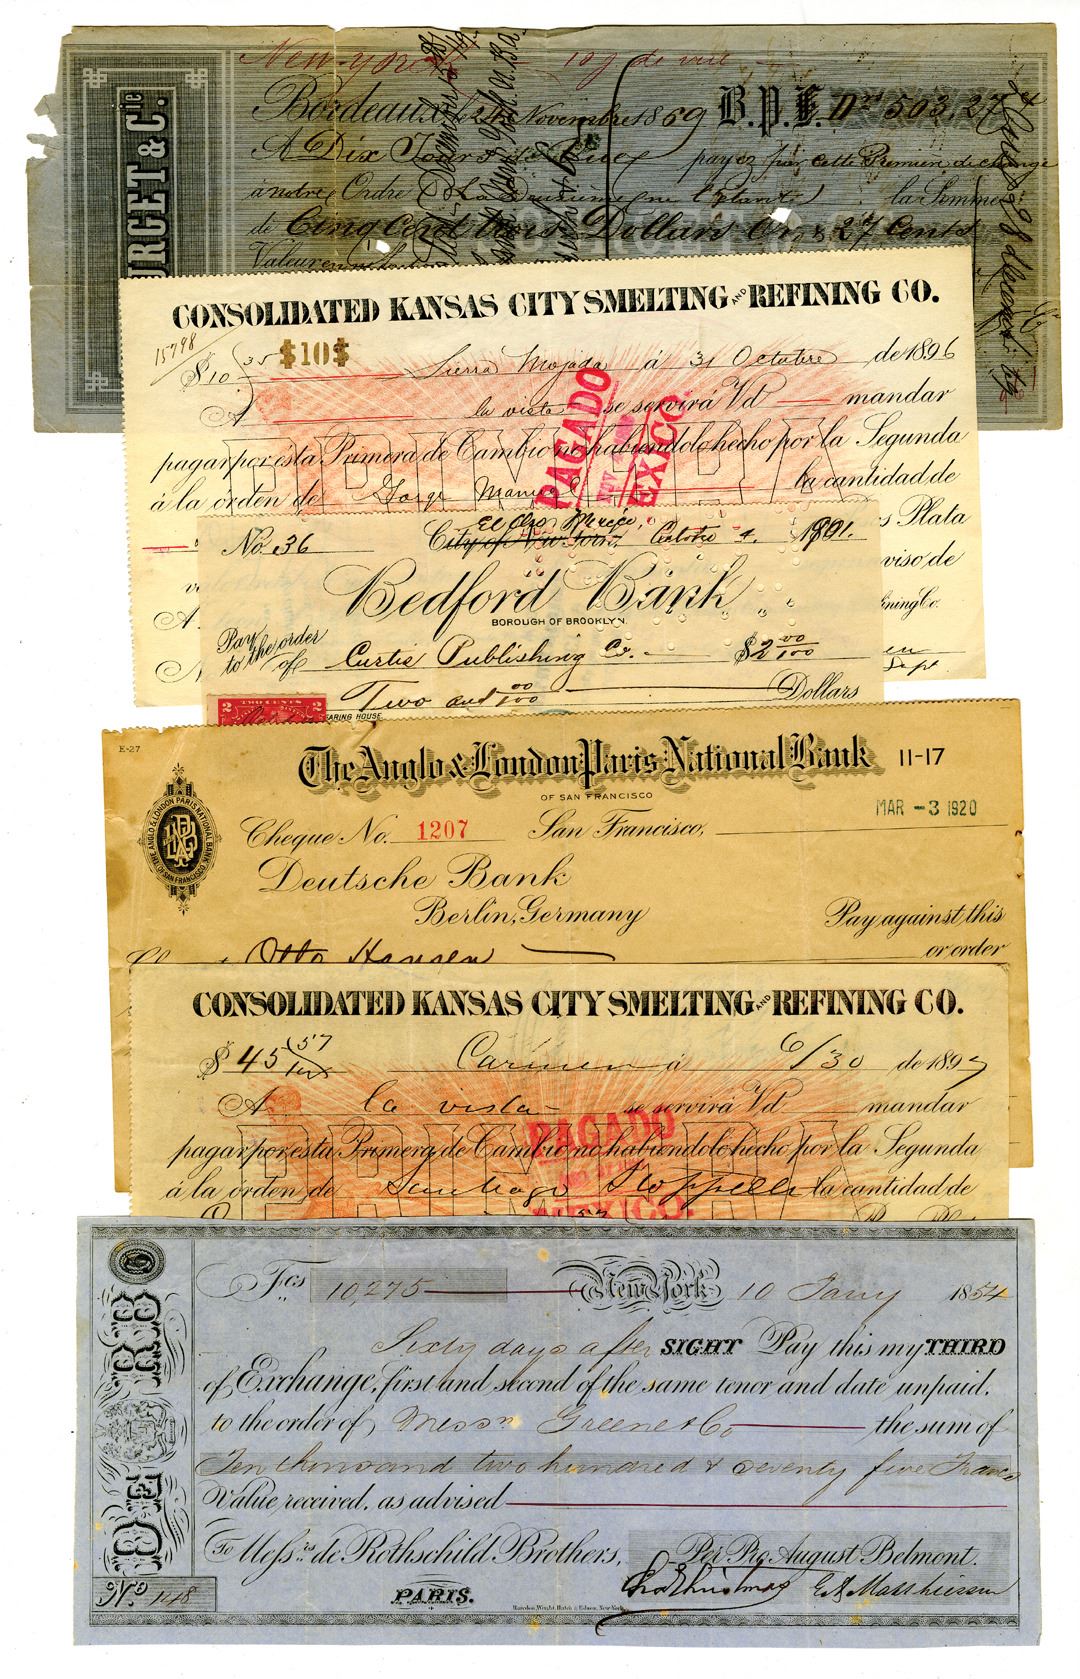 New-York
Bordeaux, le 24 Novembre 1869 B.P.F. Drs 503,27
A Dix Jours de Vue payez par cette Première de change
à notre Ordre la Sommes
de Cinq Cent trois Dollars Or & 27 Cents
Valeur en
URGET & Cie.
CONSOLIDATED KANSAS CITY SMELTING AND REFINING CO.
15798
$10 35 $10$ Sierra Mojada á 31 Octubre de 1896
A la vista se servirá Vd mandar
pagar por esta Primera de Cambio no habiendolo hecho por la Segunda
á la orden de Jorge Manuel la cantidad de
PRIMERA
PAGADO
NOV
MEXICO
s Plata
viso de
ning Co.
No. 36 City of New York, Octobre 4, 1891.
Bedford Bank
BOROUGH OF BROOKLYN.
Pay to the order of Curtis Publishing Co. $2 00/100
Two and 00/100 Dollars
2 TWO CENTS 2
EARING HOUSE
E-27
The Anglo & London Paris National Bank 11-17
OF SAN FRANCISCO
THE ANGLO & LONDON PARIS NATIONAL BANK OF SAN FRANCISCO
MAR -3 1920
Cheque No. 1207 San Francisco,
Deutsche Bank
Berlin, Germany Pay against this
Otto Hansen or order
CONSOLIDATED KANSAS CITY SMELTING AND REFINING CO.
$ 45 57/100 Carmen á 6/30 de 1897
A la vista se servirá Vd mandar
pagar por esta Primera de Cambio no habiendolo hecho por la Segunda
á la orden de Santiago la cantidad de
PRIMERA
PAGADO
MEXICO.
Fcs 10,275 New York 10 Jany 1854
Sixty days after SIGHT Pay this my THIRD
of Exchange, first and second of the same tenor and date unpaid.
to the order of Messrs Greene & Co the sum of
Ten thousand two hundred & seventy five Francs
Value received, as advised
To Messrs de Rothschild Brothers, Per Pro August Belmont.
PARIS.
Chs Christmas E. A. Matthiessen
No 148
DE RB